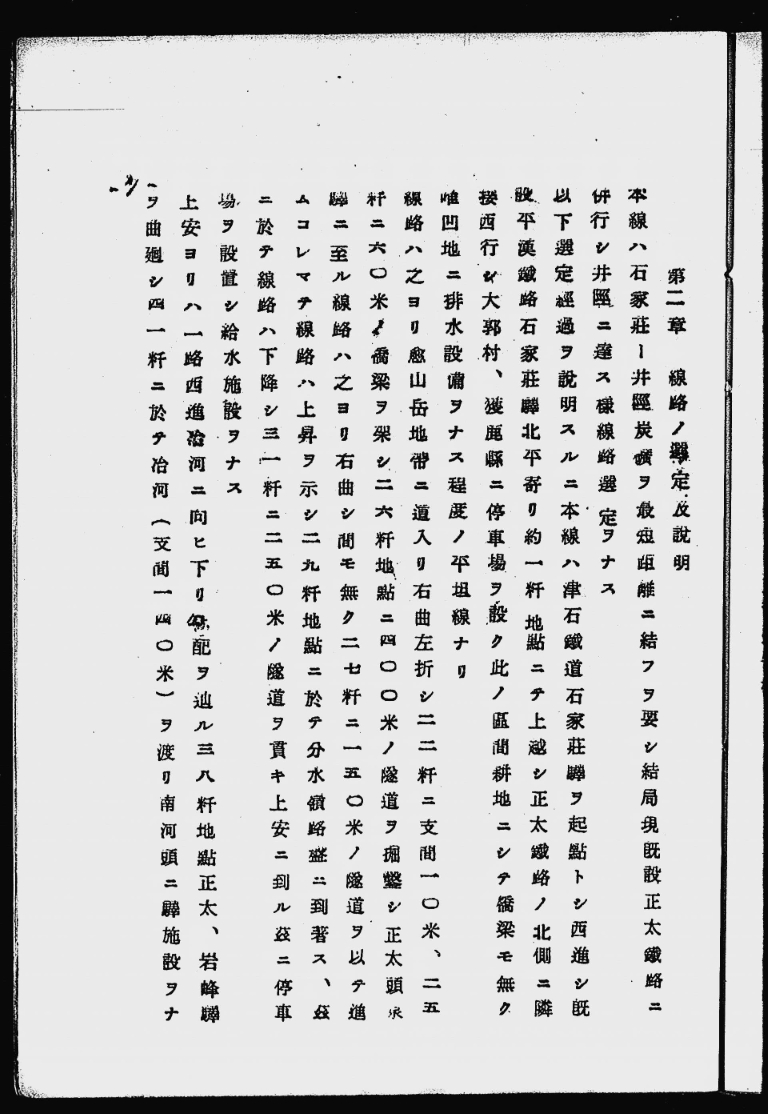 第二章 線路ノ選定及説明
本線ハ石家莊ー井陘炭礦ヲ最短距離ニ結フヲ要シ結局現既設正太鐵路ニ
併行シ井陘ニ達ス樣線路選定ヲナス
以下選定經過ヲ說明スルニ本線ハ津石鐵道石家莊驛ヲ起點トシ西進シ既
設平漢鐵路石家莊驛北平寄リ約一粁地點ニテ上越シ正太鐵路ノ北側ニ隣
接西行シ大郭村、獲鹿縣ニ停車場ヲ設ク此ノ區間耕地ニシテ橋梁モ無ク
唯凹地ニ排水設備ヲナス程度ノ平坦線ナリ
線路ハ之ヨリ愈山岳地帶ニ道入リ右曲左折シ二二粁ニ支間一〇米、二五
粁ニ六〇米ノ橋梁ヲ架シ二六粁地點ニ四〇〇米ノ隧道ヲ掘鑿シ正太頭泉
驛ニ至ル線路ハ之ヨリ右曲シ間モ無ク二七粁ニ一五〇米ノ隧道ヲ以テ進
ムコレマテ線路ハ上昇ヲ示シ二九粁地點ニ於テ分水嶺路盤ニ到著ス、玆
ニ於テ線路ハ下降シ三一粁ニ二五〇米ノ隧道ヲ貫キ上安ニ到ル玆ニ停車
場ヲ設置シ給水施設ヲナス
上安ヨリハ一路西進冶河ニ向ヒ下リ勾配ヲ辿ル三八粁地點正太、岩峰驛
ヲ曲廻シ四一粁ニ於テ冶河（支間一四〇米）ヲ渡リ南河頭ニ驛施設ヲナ